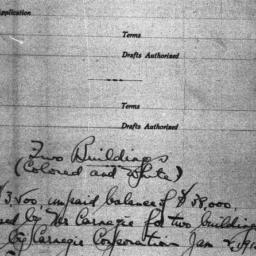 Application
Terms
Drafts Authorized
Terms
Drafts Authorized
Two Buildings
(Colored and White)
$3,500, unpaid balance of $38,000,
by The Carnegie for two building
by Carnegie Corporation Jan 2, 191